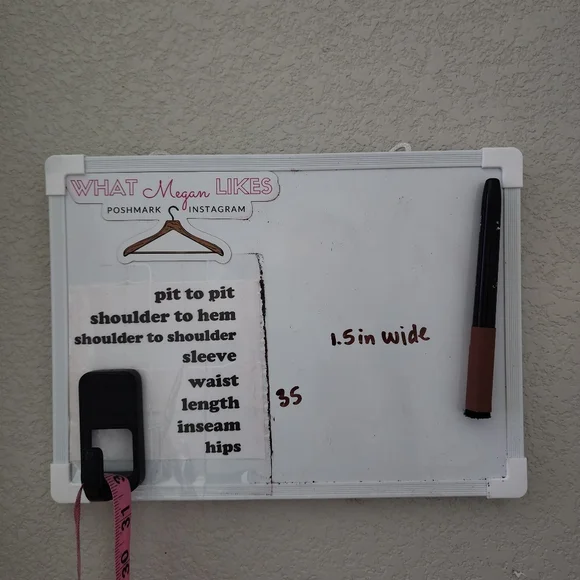 WHAT Megan LIKES
POSHMARK INSTAGRAM
pit to pit
shoulder to hem
shoulder to shoulder
sleeve
waist
length 35
inseam
hips
1.5in wide
31
30